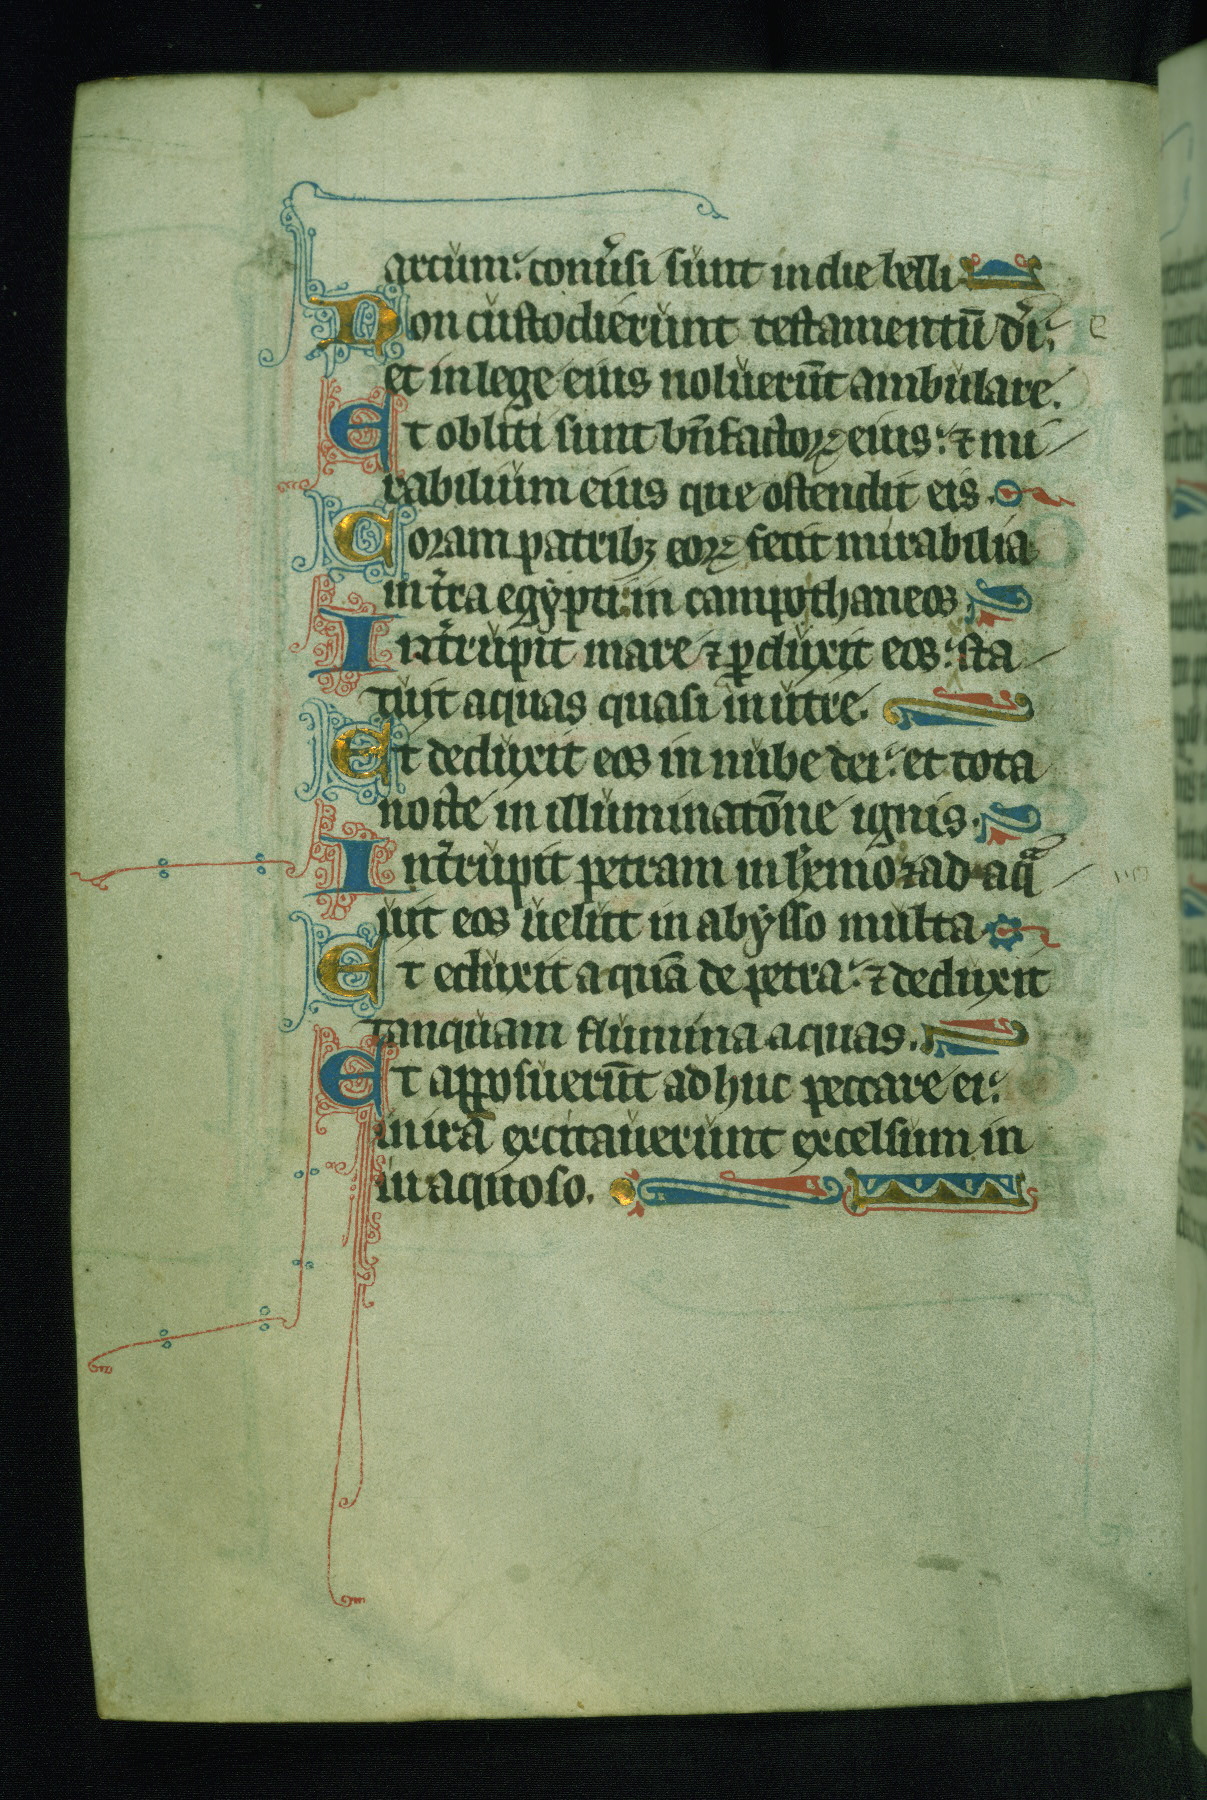 arcum: conu̾si sunt in die belli
Non custodierunt testamentū dī:
et in lege eius noluerūt ambulare.
Et obliti sunt bn̄factoꝝ eius: ⁊ mi
rabilium eius que ostendit eis.
Coram patribꝫ eoꝝ fecit mirabilia
in t̄ra egypti: in campo thaneos
Int̄rupit mare ⁊ ꝑduxit eos: sta
tuit aquas quasi in utre.
Et deduxit eos in nube dei: et tota
nocte in illuminatōne ignis.
Int̄rupit petram in h̄emo ⁊ ad aq̄
uit eos uelut in abysso multa
Et eduxit aquā de petra: ⁊ deduxit
tanquam flumina aquas.
Et apposuerūt ad huc peccare ei:
in irā excitauerunt excelsum in
in aquoso.